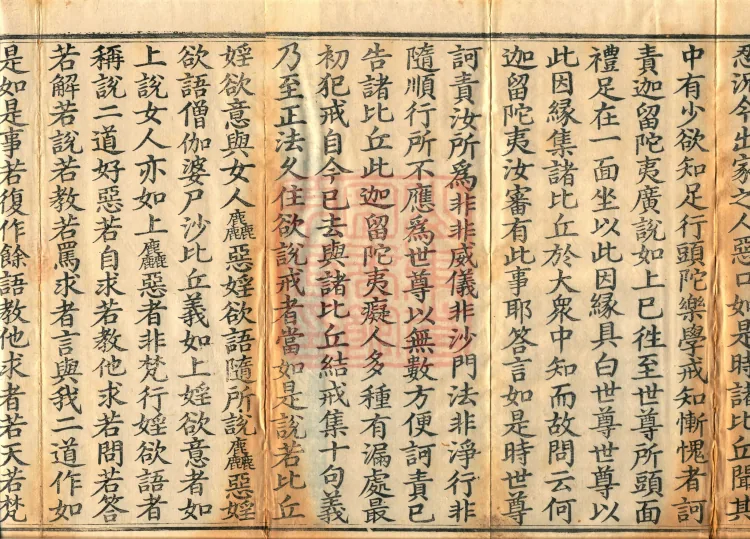 忍況今出家之人惡口如是時諸比丘聞其
中有少欲知足行頭陀樂學戒知慚愧者訶
責迦留陀夷廣說如上已徃至世尊所頭面
禮足在一面坐以此因緣具白世尊世尊以
此因緣集諸比丘於大眾中知而故問云何
迦留陀夷汝審有此事耶答言如是時世尊
訶責汝所爲非非威儀非沙門法非淨行非
隨順行所不應爲世尊以無數方便訶責已
告諸比丘此迦留陀夷癡人多種有漏處最
初犯戒自今已去與諸比丘結戒集十句義
乃至正法久住欲說戒者當如是說若比丘
婬欲意與女人麤惡婬欲語隨所說麤惡婬
欲語僧伽婆尸沙比丘義如上婬欲意者如
上說女人亦如上麤惡者非梵行婬欲語者
稱說二道好惡若自求若教他求若問若答
若解若說若教若罵求者言與我二道作如
是如是事若復作餘語教他求者若天若梵